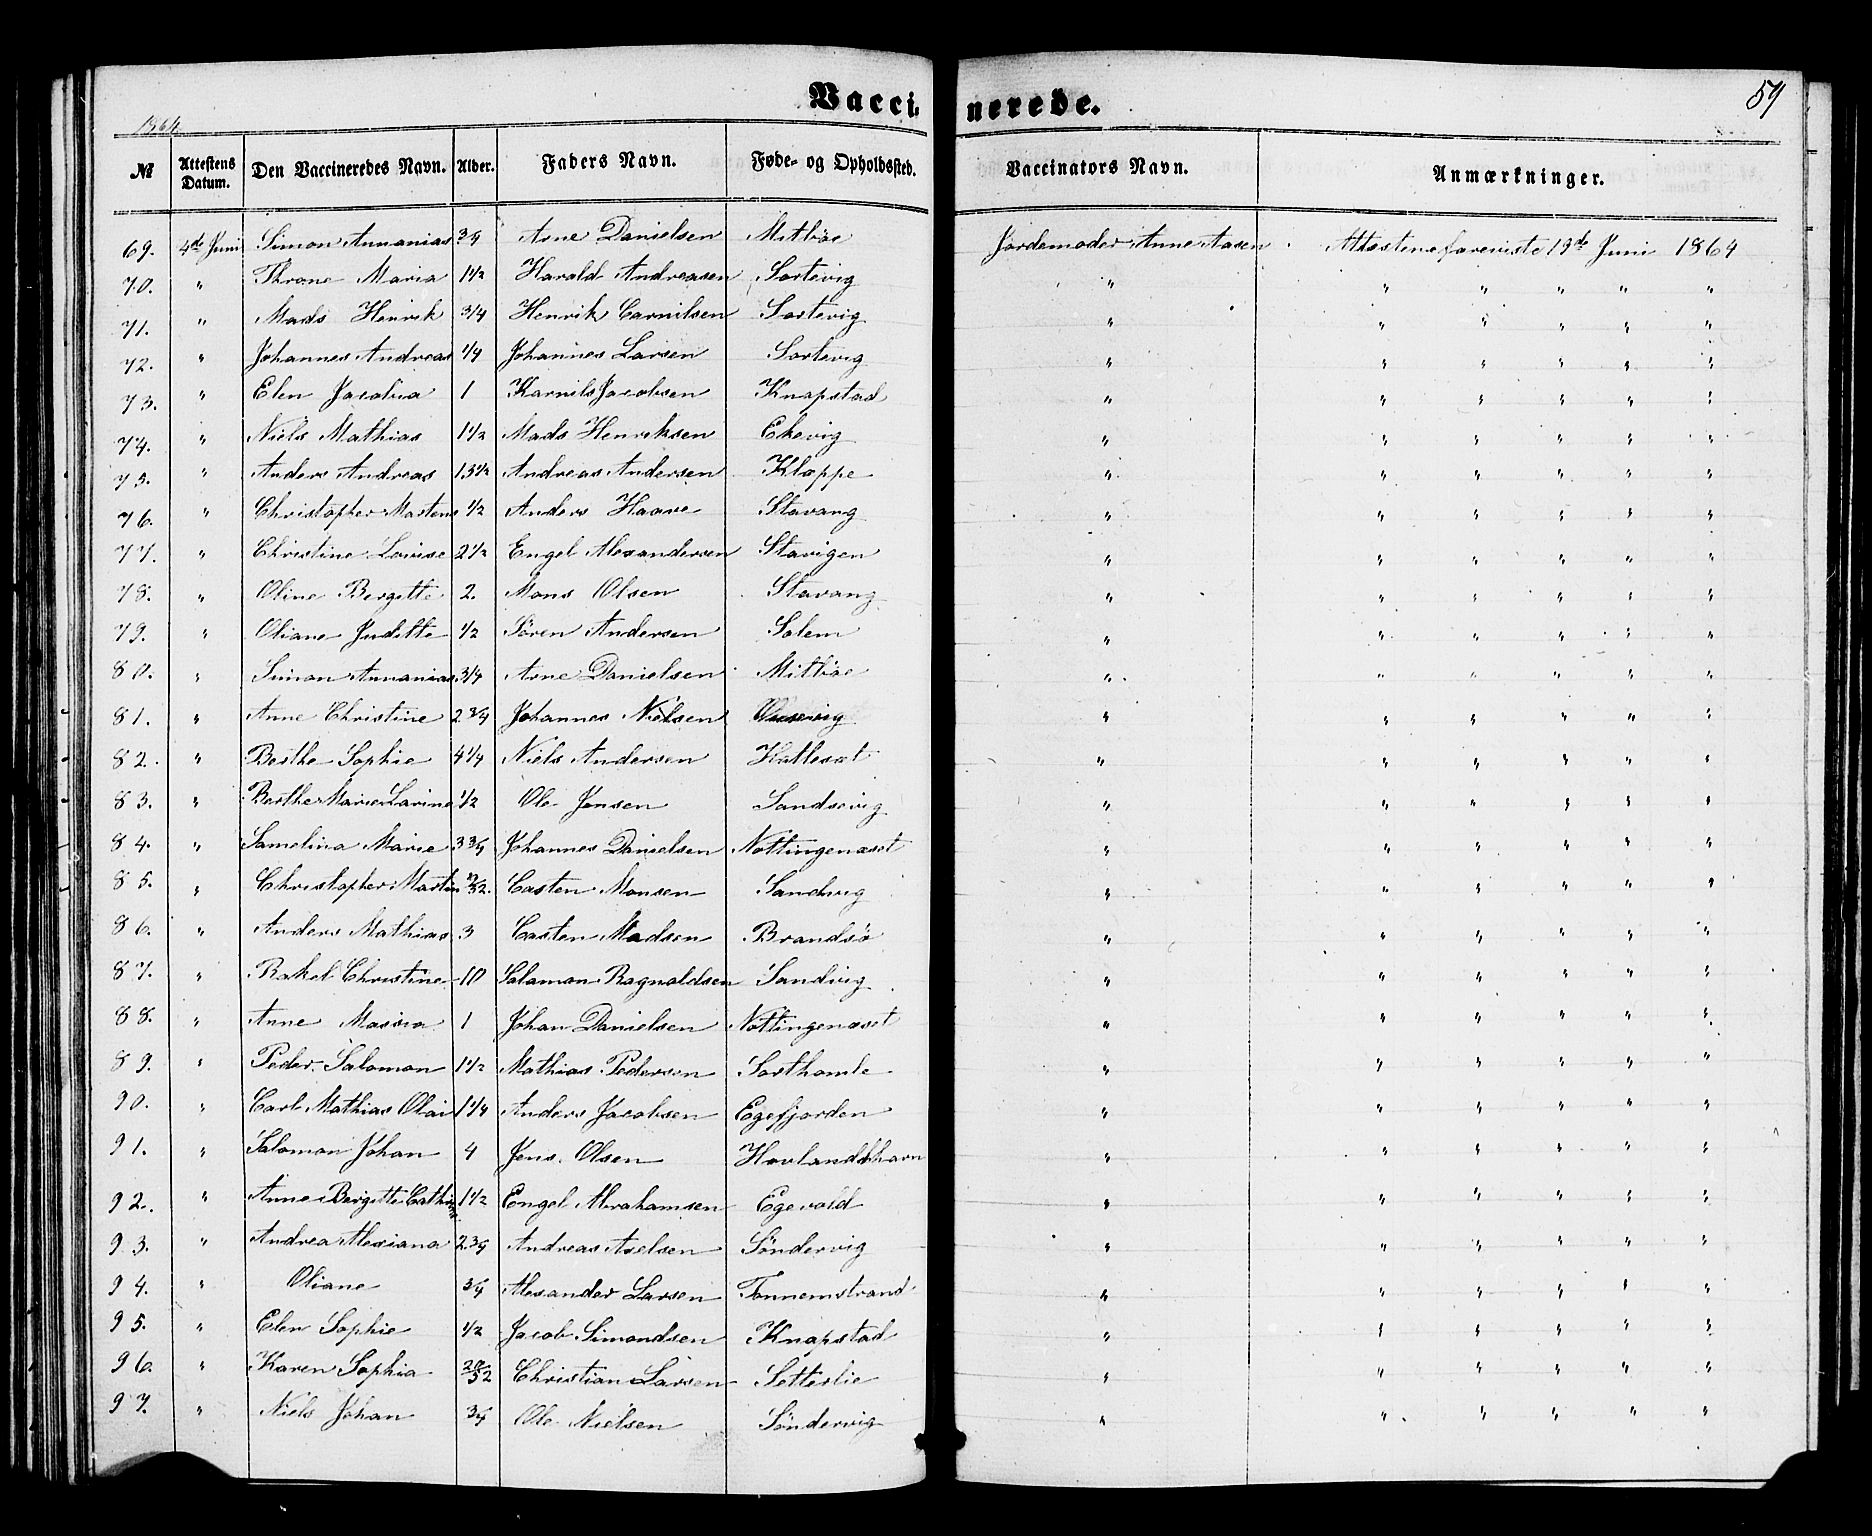 Vaccinerede.
59
1864
№ Attestens Datum. Den Vaccineredes Navn. Alder. Faders Navn. Føde- og Opholdssted. Vaccinators Navn. Anmærkninger.
69. 4de Juni Simon Annanias 3/4 Arne Danielsen Mitbøe Jordemoder Anne Aasen Attesterne foreviste 19de Juni 1864
70. " Throne Maria 1 1/2 Harald Andreasen Sortevig " " " " " "
71. " Mads Henrik 3/4 Henrik Carnilsen Sortevig " " " " " "
72. " Johannes Andreas 1/4 Johannes Larsen Sortevig " " " " " "
73. " Elen Jacobia 1 Karnils Jacobsen Knapstad " " " " " "
74. " Niels Mathias 1 1/2 Mads Henriksen Ekevig " " " " " "
75. " Anders Andreas 13 1/2 Andreas Andersen Klappe " " " " " "
76. " Christopher Martens 1/2 Anders Haave Stavang " " " " " "
77. " Christine Louise 2 1/2 Engel Alexandersen Stavigen " " " " " "
78. " Oline Bergitte 2. Mons Olsen Stavang " " " " " "
79. " Oliane Juditte 1/2 Søren Andersen Solem " " " " " "
80. " Simon Annanias 3/4 Arne Danielsen Mitbøe " " " " " "
81. " Anne Christine 2 3/4 Johannes Nielsen " " " " " "
82. " Berthe Sophie 4 1/4 Niels Andersen Hattesæt " " " " " "
83. " Berthe Marie Larine 1/2 Ole Jensen Sandsvig " " " " " "
84. " Samelina Marie 3 3/4 Johannes Danielsen Nottingenæset " " " " " "
85. " Christopher Martin Casten Monsen Sandvig " " " " " "
86. " Anders Mathias 3 Casten Madsen Brandsø " " " " " "
87. " Rakel Christine 10 Salamon Ragnaldsen Sandvig " " " " " "
88. " Anne Massia 1 Johan Danielsen Nottingenæset " " " " " "
89. " Peder Salomon 1 1/2 Mathias Pedersen Sorthamle " " " " " "
90. " Carl Mathias Olai 1 1/4 Anders Jacobsen Egefjorden " " " " " "
91. " Salomon Johan 4 Jens Olsen Hovlandshavn " " " " " "
92. " Anne Bergitte Cathrine 1 1/2 Engel Abrahamsen Egevold " " " " " "
93. " Andrea Alexiana 2 3/4 Andreas Axelsen Søndervig " " " " " "
94. " Oliane 3/4 Alexander Larsen Tonnemstrand " " " " " "
95. " Elen Sophie 1/2 Jacob Simondsen Knapstad " " " " " "
96. " Karen Sophia 20/52 Christian Larsen Setterlie " " " " " "
97. " Niels Johan 3/4 Ole Nielsen Søndervig " " " " " "